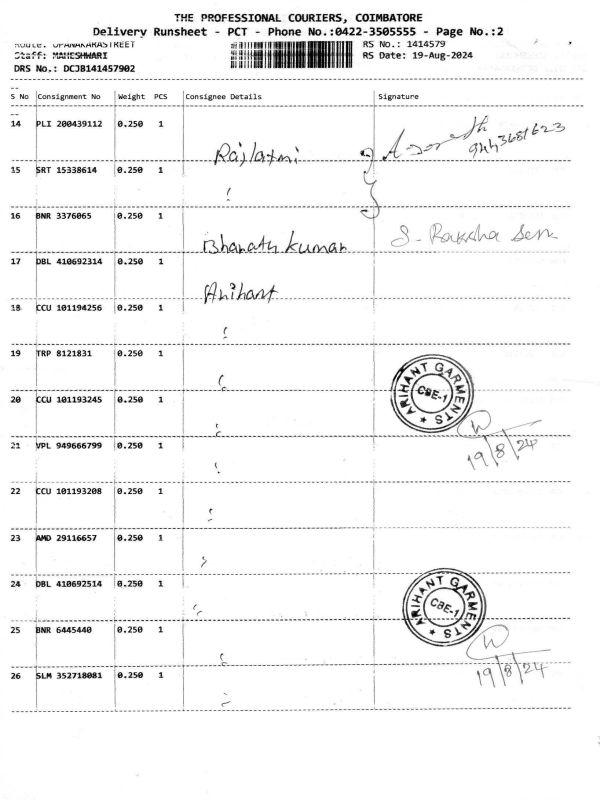 THE PROFESSIONAL COURIERS, COIMBATORE
Delivery Runsheet - PCT - Phone No.:0422-3505555 - Page No.:2
Route: OPANAKARASTREET RS No.: 1414579
Staff: MAHESHWARI RS Date: 19-Aug-2024
DRS No.: DCJB141457902
S No Consignment No Weight PCS Consignee Details Signature
14 PLI 200439112 0.250 1 Rajlaxmi 9443681623
15 SRT 15338614 0.250 1 "
16 BNR 3376065 0.250 1 Bharath kumar S. Raksha Sen
17 DBL 410692314 0.250 1 Arihant
18 CCU 101194256 0.250 1 "
19 TRP 8121831 0.250 1 "
ARIHANT GARMENTS
CBE-1
20 CCU 101193245 0.250 1 "
19/8/24
21 VPL 949666799 0.250 1 "
22 CCU 101193208 0.250 1 "
23 AMD 29116657 0.250 1 "
24 DBL 410692514 0.250 1 "
ARIHANT GARMENTS
CBE-1
25 BNR 6445440 0.250 1 "
19/8/24
26 SLM 352718081 0.250 1 "